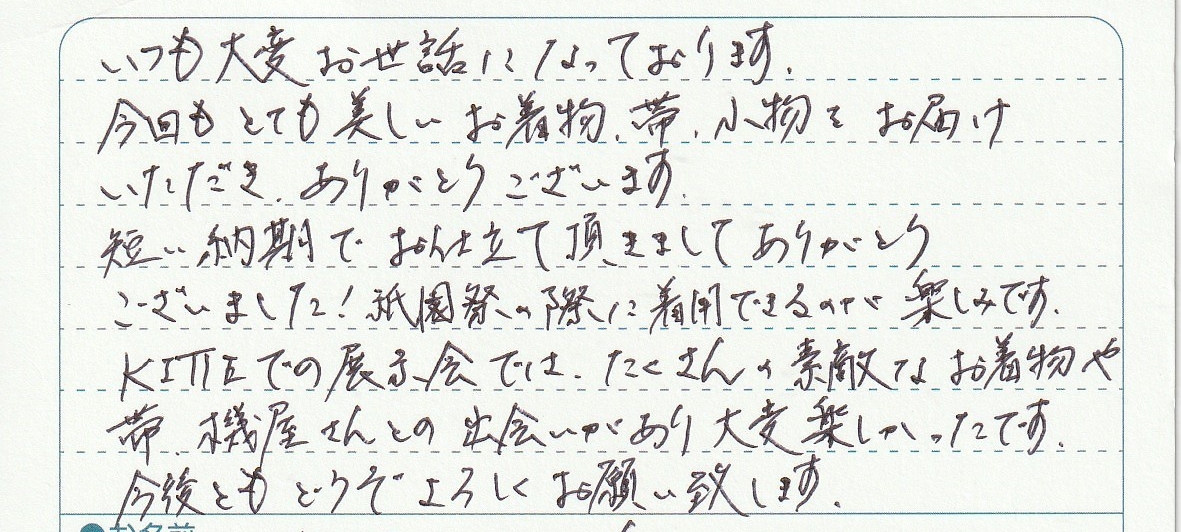 いつも大変お世話になっております.
今回もとても美しいお着物、帯、小物をお届け
いただき、ありがとうございます.
短い納期でお仕立て頂きましてありがとう
ございました!祇園祭の際に着用できるのが楽しみです.
KITTEでの展示会では、たくさんの素敵なお着物や
帯、機屋さんとの出会いがあり大変楽しかったです.
今後ともどうぞよろしくお願い致します.
●お名前